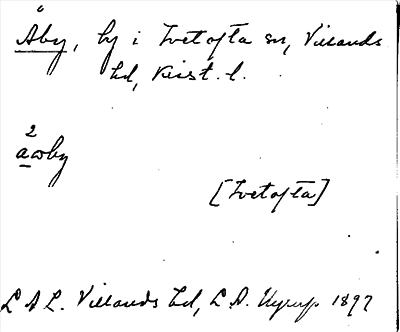 Åby, by i Ivetofta sn, Villands
hd, Krist. l.
2
awby
[Ivetofta]
L A L. Villands hd, L. P. 1897